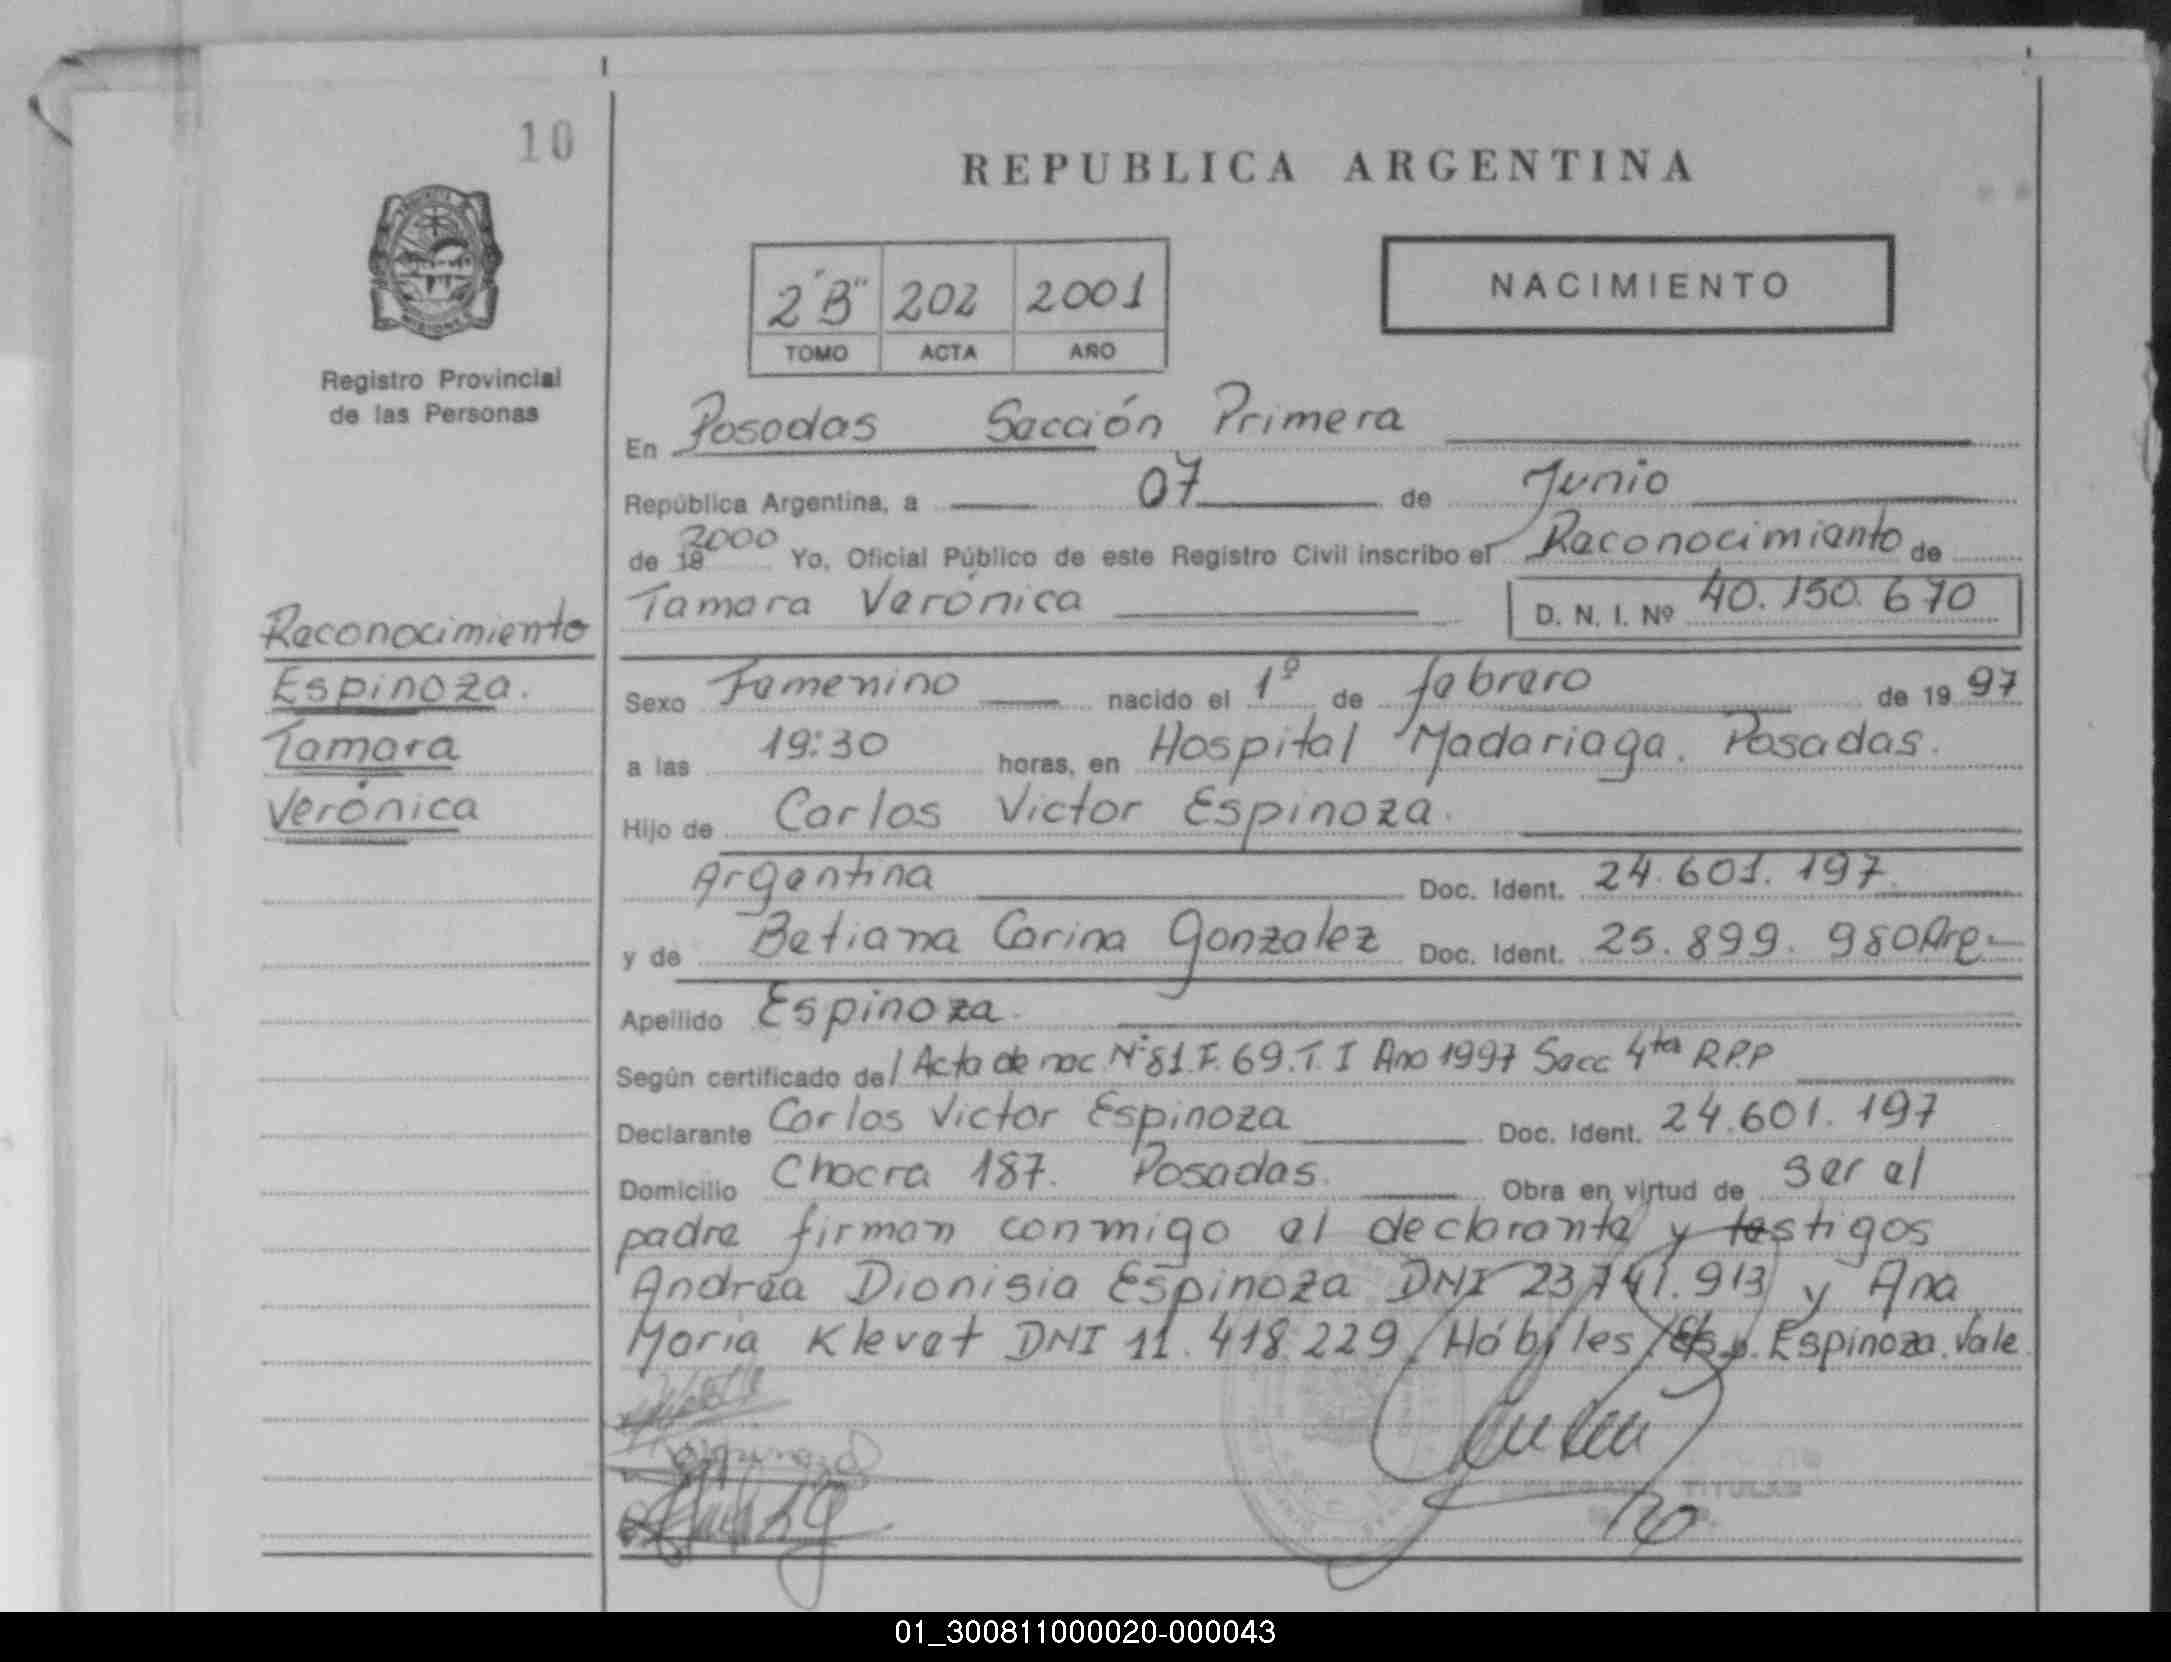 10
REPUBLICA ARGENTINA
2"B" 202 2001
TOMO ACTA AÑO
NACIMIENTO
Registro Provincial
de las Personas
En Posadas Sección Primera
República Argentina, a 07 de Junio
de 19 2000 Yo, Oficial Público de este Registro Civil inscribo el Reconocimiento de
Tamara Verónica D. N. I. Nº 40.150.670
Reconocimiento
Espinoza.
Tamara
Verónica
Sexo Femenino nacido el 1º de febrero de 19 97
a las 19:30 horas, en Hospital Madariaga. Posadas.
Hijo de Carlos Victor Espinoza.
Argentina Doc. Ident. 24.601.197
y de Betiana Carina Gonzalez Doc. Ident. 25.899.980 Arg.
Apellido Espinoza
Según certificado del Acta de nac Nº 81.F.69.T.I Año 1997 Secc 4ta R.P.P
Declarante Carlos Victor Espinoza Doc. Ident. 24.601.197
Domicilio Chacra 187. Posadas. Obra en virtud de ser el
padre firman conmigo el declarante y testigos
Andrea Dionisia Espinoza DNI 23.741.913 y Ana
Maria Klevet DNI 11.418.229 Hábiles Espinoza. Vale.
TITULAR
01_300811000020-000043